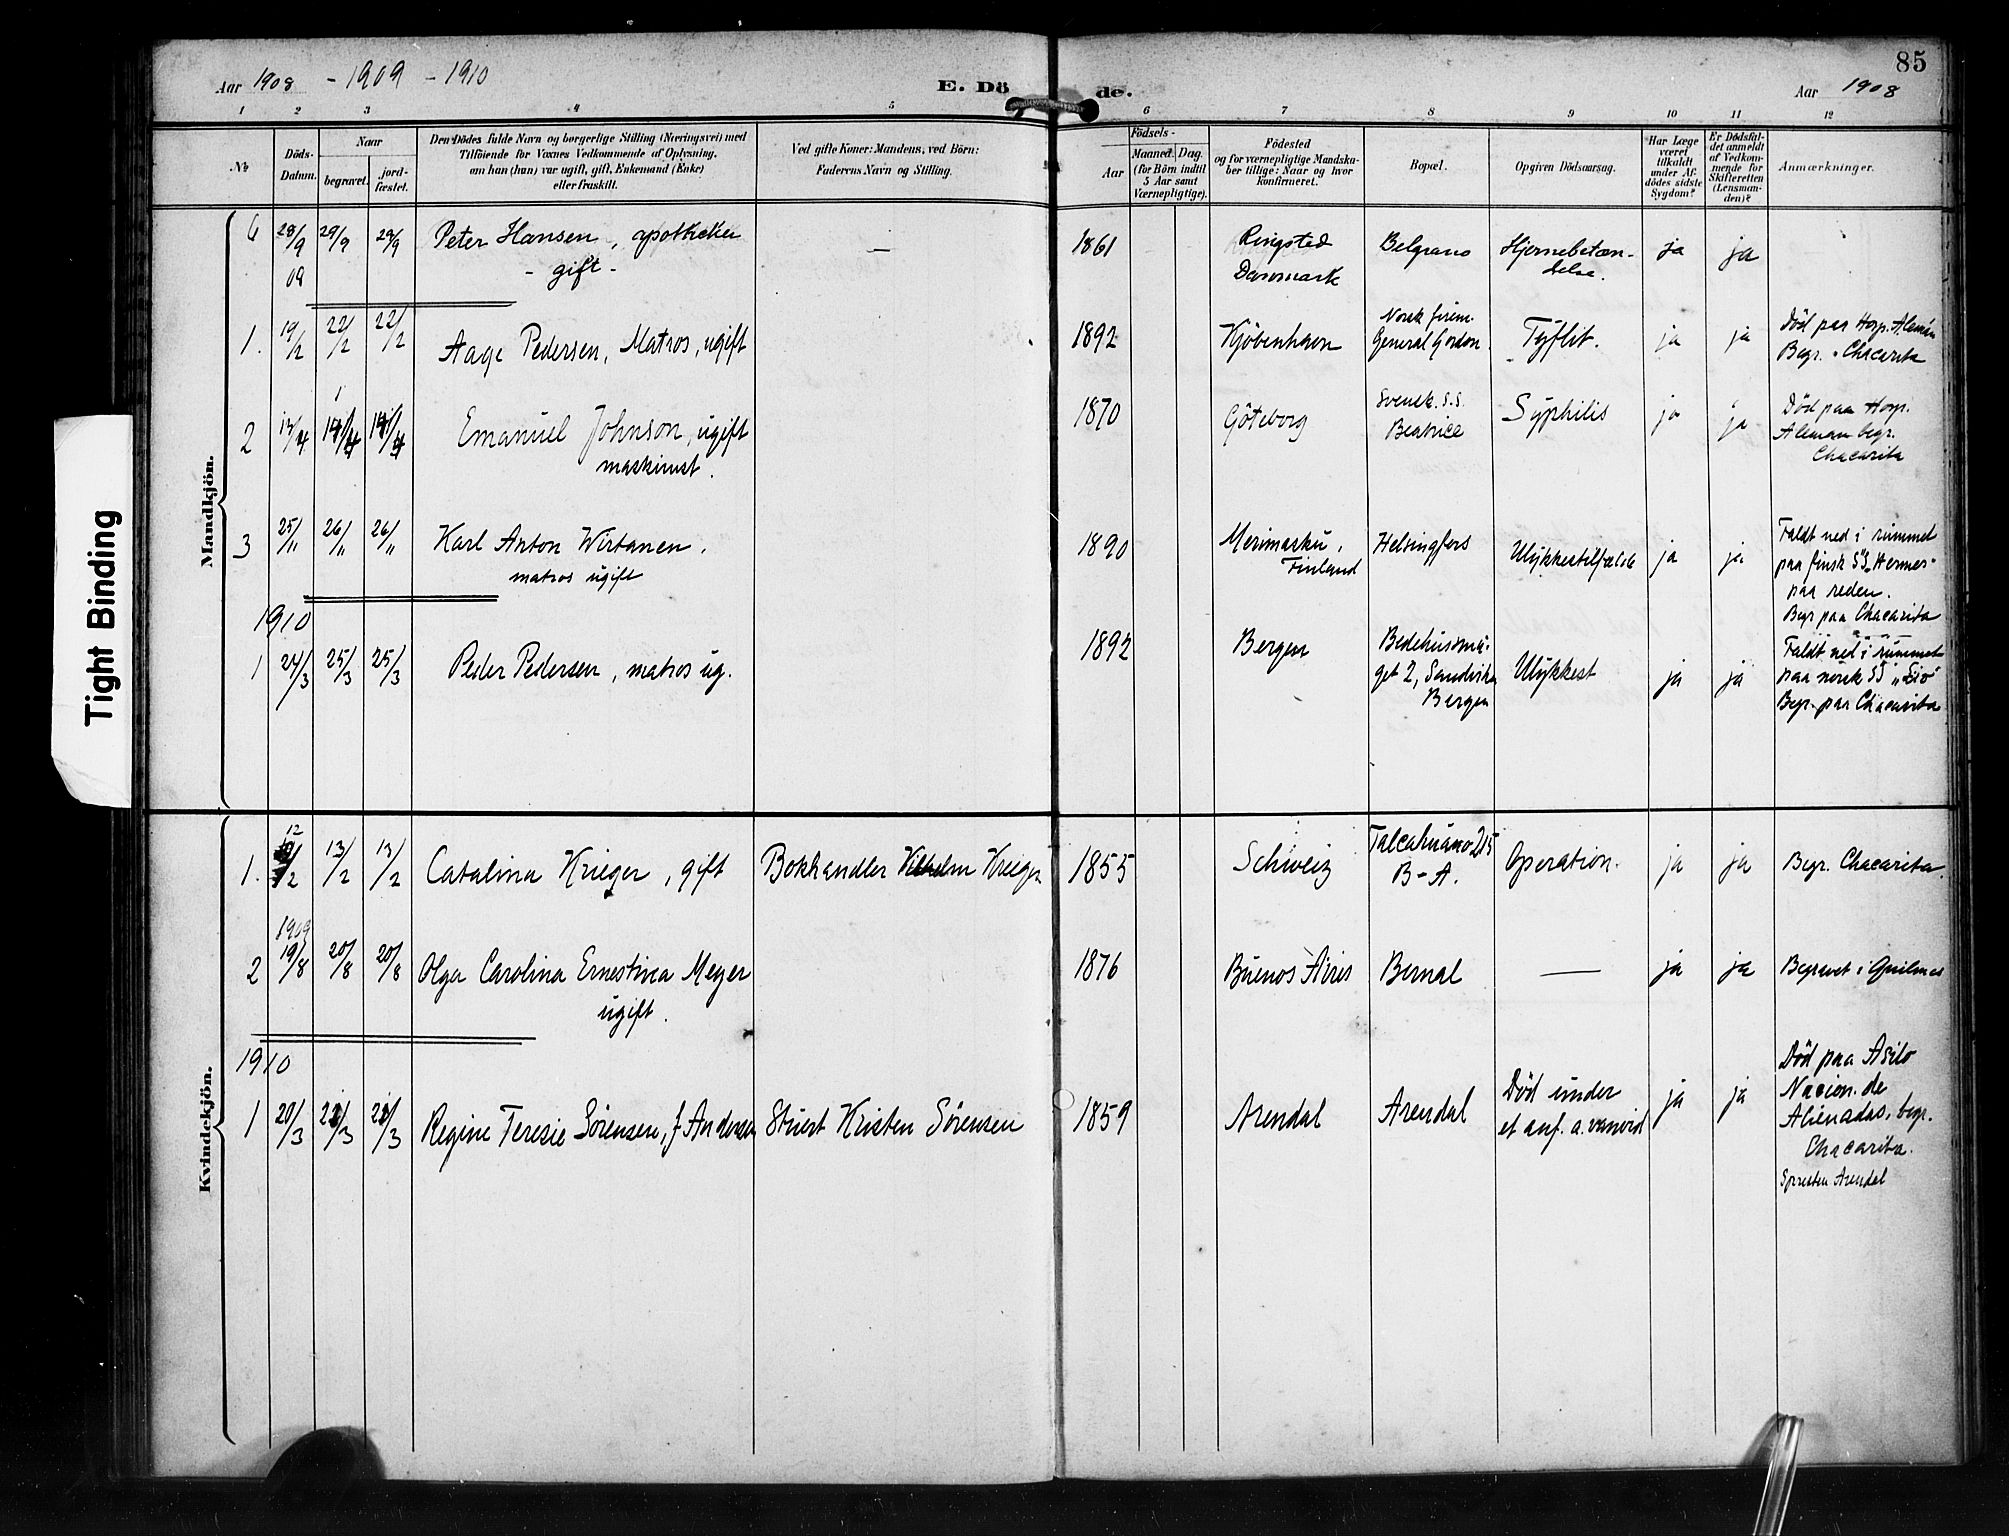 85
Aar 1908 - 1909 - 1910 E. Dö de. Aar 1908
1 2 3 4 5 6 7 8 9 10 11 12
No
Döds-
Datum.
Naar
begravet.
jord-
fæstet.
Den Dödes fulde Navn og borgerlige Stilling (Næringsvei) med
Tilföiende for Voxnes Vedkommende af Oplysning.
om han (hun) var ugift, gift, Enkemand (Enke)
eller fraskilt.
Ved gifte Koner: Mandens, ved Börn:
Faderens Navn og Stilling.
Födsels-
Aar
Maaned. Dag.
(for Börn indtil
5 Aar samt
Værnepligtige).
Födested
og for værnepligtige Mandska-
ber tillige: Naar og hvor
konfirmeret.
Bopæl.
Opgiven Dödsaarsag.
Har Læge
været
tilkaldt
under Af-
dödes sidste
Sygdom?
Er Dödsfal-
det anmeldt
af Vedkom-
mende for
Skifteretten
(Lensman-
den)?
Anmærkninger.
Mandkjön.
6 28/9 09 29/9 29/9 Peter Hansen, apotheker — 1861 Ringsted Belgrano Hjernebetæn- ja ja
- gift - Danmark delse.
1. 19/2 22/2 22/2 Aage Pedersen, Matros, ugift 1892 Kjöbenhavn Norsk
General Gordon. Tyflit. ja ja Död paa Hosp. Alemán
Begr. Chacarita
2 13/4 14/4 14/4 Emanuel Johnson, ugift 1870 Göteborg Svensk. S.S. Syphilis ja ja Död paa Hosp.
maskinist. Beatrice Aleman begr.
Chacarita
3 25/11 26/11 26/11 Karl Anton Wirtanen. 1890 Merimasku, Helsingfors Ulykkestilfælde ja ja Faldt ned i rummet
matros ugift Finland paa finsk SS „Hermes"
paa reden.
Begr paa Chacarita
1910
1 24/3 25/3 25/3 Peder Pedersen, matros ug. 1892 Bergen Bedehussmu- Ulykkest ja ja Faldt ned i rummet
get 2, Sandviken paa norsk SS
Bergen Begr. paa Chacarita
Kvindekjön.
1. 12/2 13/2 13/2 Catalina Krieger, gift Bokhandler Vilhelm Krieger 1855 Schweiz Talcahuano 215 Operation. ja ja Begr. Chacarita.
B-A.
1909
2 19/8 20/8 20/8 Olga Carolina Ernestina Meyer 1876 Buenos Aires Bernal — ja ja Begravet i Quilmes
ugift.
1910
1 20/3 21/3 21/3 Regine Teresie Sörensen, f Andersen Stuert Kristen Sörensen 1859 Arendal Arendal Död under ja ja Död paa Asilo
et anf. a. vanvid Nacion. de
Alienadas, begr.
Chacarita.
Arendal
Tight Binding